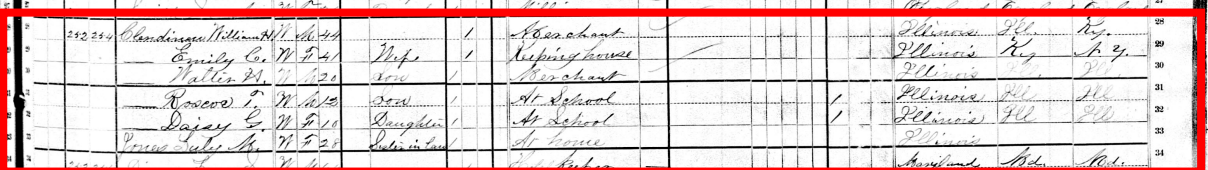 28
252 254 Clendinin William H. W M 44 1 Merchant Illinois Ill. Ky. 29
— Emily C. W F 41 Wife 1 Keeping house Illinois Ky N.Y. 30
Walter H. W M 20 Son 1 Merchant Illinois Ill Ill
— Roscoe T. W M 12 Son 1 At School 1 Illinois Ill Ill 31
— Daisy C. W F 10 Daughter 1 At School 1 Illinois Ill Ill 32
Jones Luly M. W F 28 Sister in Law At home Illinois 33
Maryland Md. Md. 34